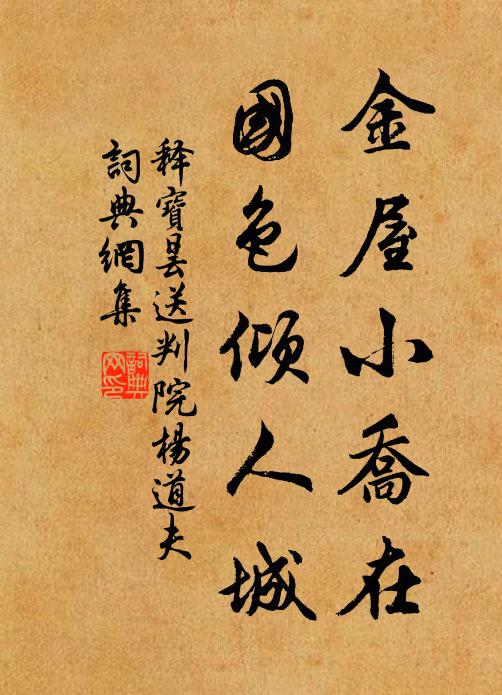 金屋小喬在
國色傾人城
釋寶曇送判院楊道夫
詞典網集
詞典網印